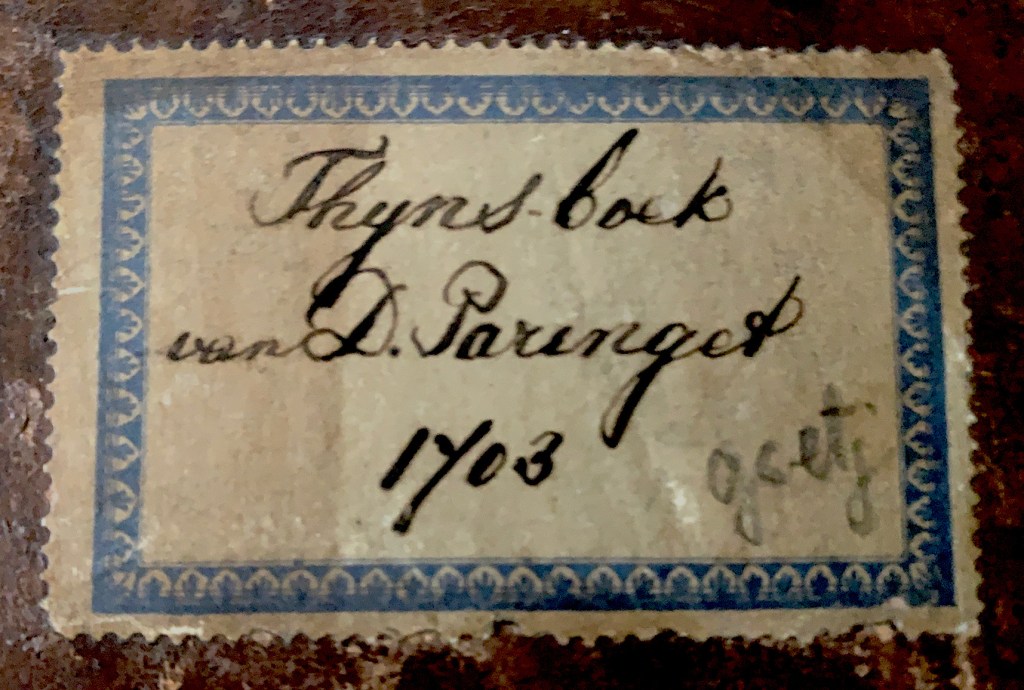 Thyns-boek
van D. Paringet
1703